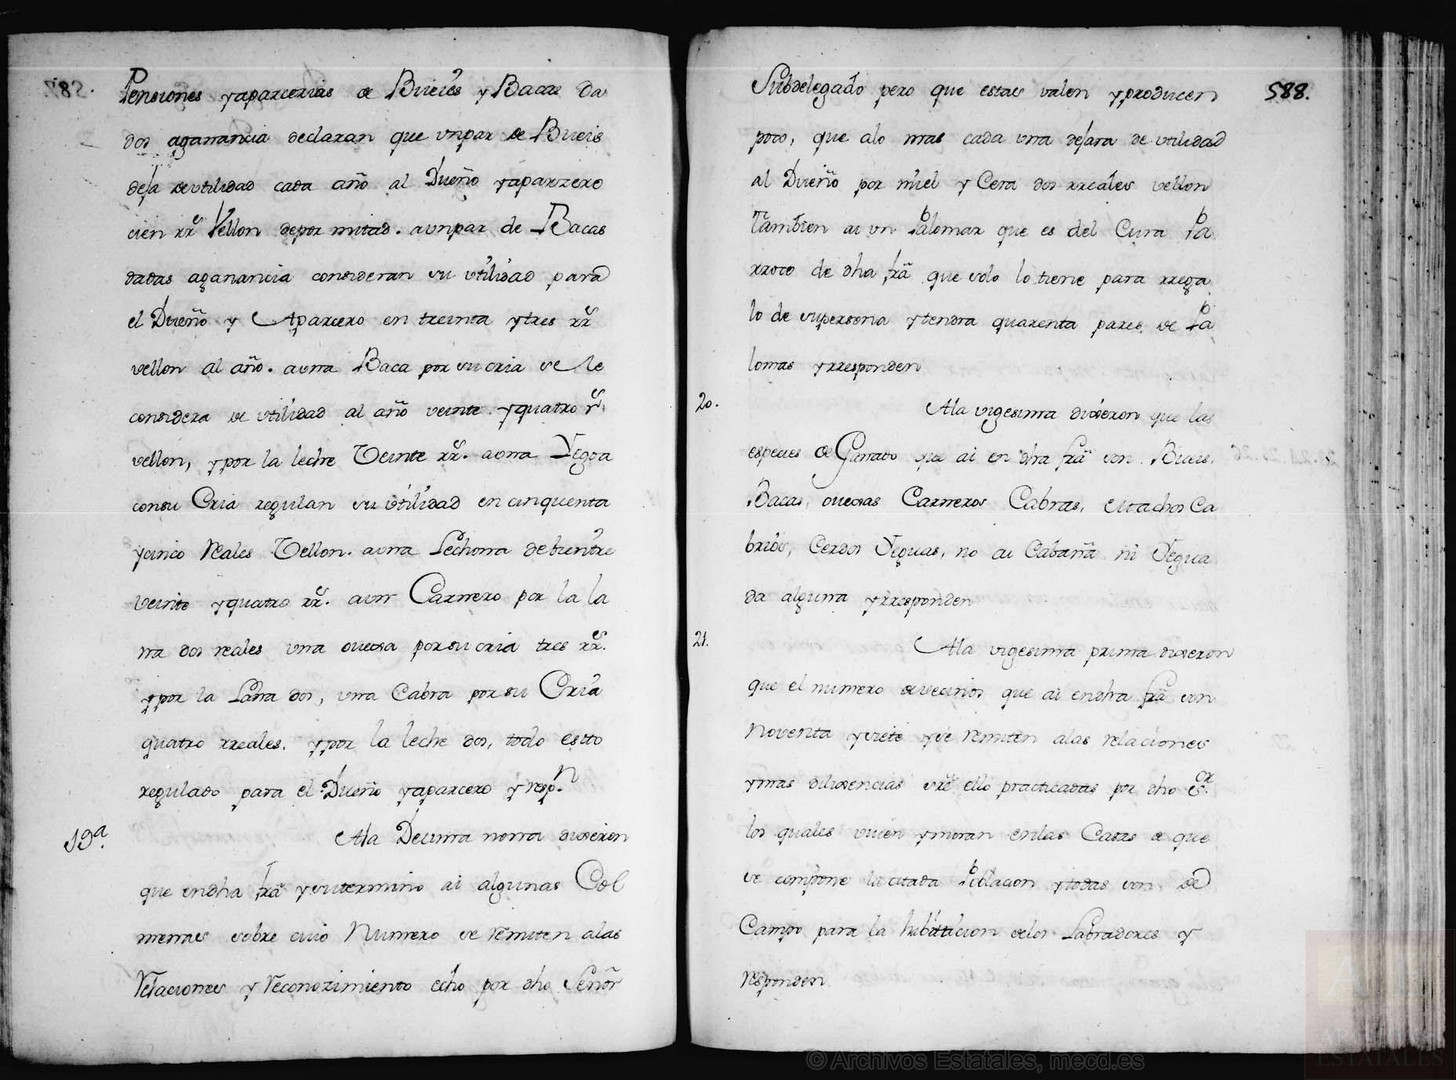 Pensiones yaparcerias de Bueies y Bacas da
dos aganancia declaran que vnpar de Bueis
deja deutilidad cada año al Dueño yaparzero
cien rr.s Vellon depor mitad. aunpar de Bacas
dadas aganancia consideran su vtilidad para
el Dueño y Aparcero en treinta ytres rr.s
vellon al año. auna Baca por sucria se le
considera de vtilidad al año veinte yquatro r.s
vellon, ypor la leche Veinte rr.s auna Yegoa
consu Cria regulan su vtilidad en cinquenta
ycinco Reales Vellon. auna Lechona debientre
veinte yquatro rr.s aun Carnero por la la
na dos reales una ouexa porsucria tres rr.s
ypor la Lana dos, una Cabra por su Cria
quatro rreales, ypor la leche dos, todo esto
regulado para el Dueño yaparcero y resp.n
19a. Ala Decima nona dixeron
que endha fra ysutermino ai algunas Col
menas sobre cuio Numero se remiten alas
Relaciones y Reconozimiento echo por dho Señor
588.
Subdelegado pero que estas valen yproducen
poco, que alo mas cada una dejara de vtilidad
al Dueño por miel y Cera dos rreales vellon
Tambien ai vn Palomar que es del Cura Pa
rroco de dha fra que solo lo tiene para rrega
lo de supersona ytendra quarenta pares de Pa
lomas yrresponden
20. Ala vigesima dixeron que las
especies de Ganado que ai en dha fra son Bueis,
Bacas, ouexas Carneros Cabras, Machos Ca
brios, Cerdos Yeguas, no ai Cabaña ni Yegua
da alguna yrresponden
21. Ala vigesima prima dixeron
que el numero devecinos que ai endha fra son
Noventa ysiete yse remiten alas relaciones
ymas dilixencias sre ello practicadas por dho S.or
los quales viuen ymoran enlas Casas de que
se compone lacitada Poblacion ytodas son de
Campo para la habitacion delos Labradores y
responden
© Archivos Estatales, mecd.es